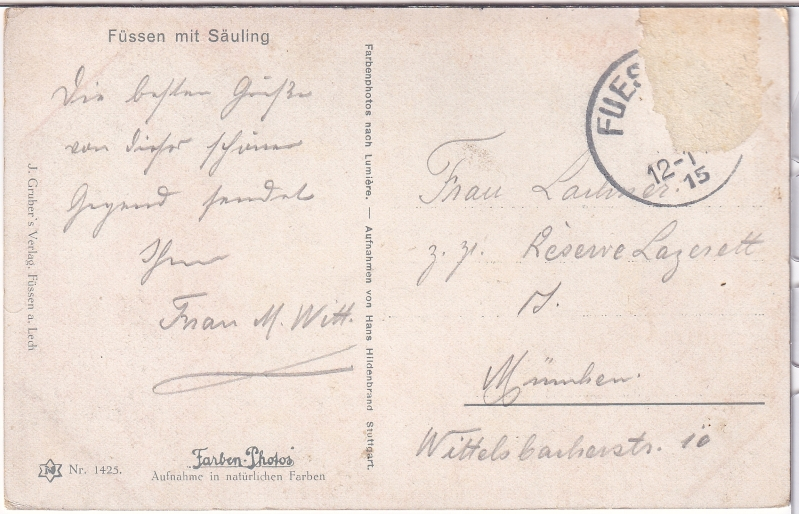 Füssen mit Säuling
Die besten Grüße
von dieser schönen
Gegend sendet
Ihnen
Frau M. Witt.
J. Gruber's Verlag, Füssen a. Lech
Nr. 1425.
Farben-Photos
Aufnahme in natürlichen Farben
Farbenphotos nach Lumière. — Aufnahmen von Hans Hildenbrand Stuttgart.
FUES
12-1
15
Frau
z. Zt. Réserve Lazerett
München.
Wittelsbacherstr. 10